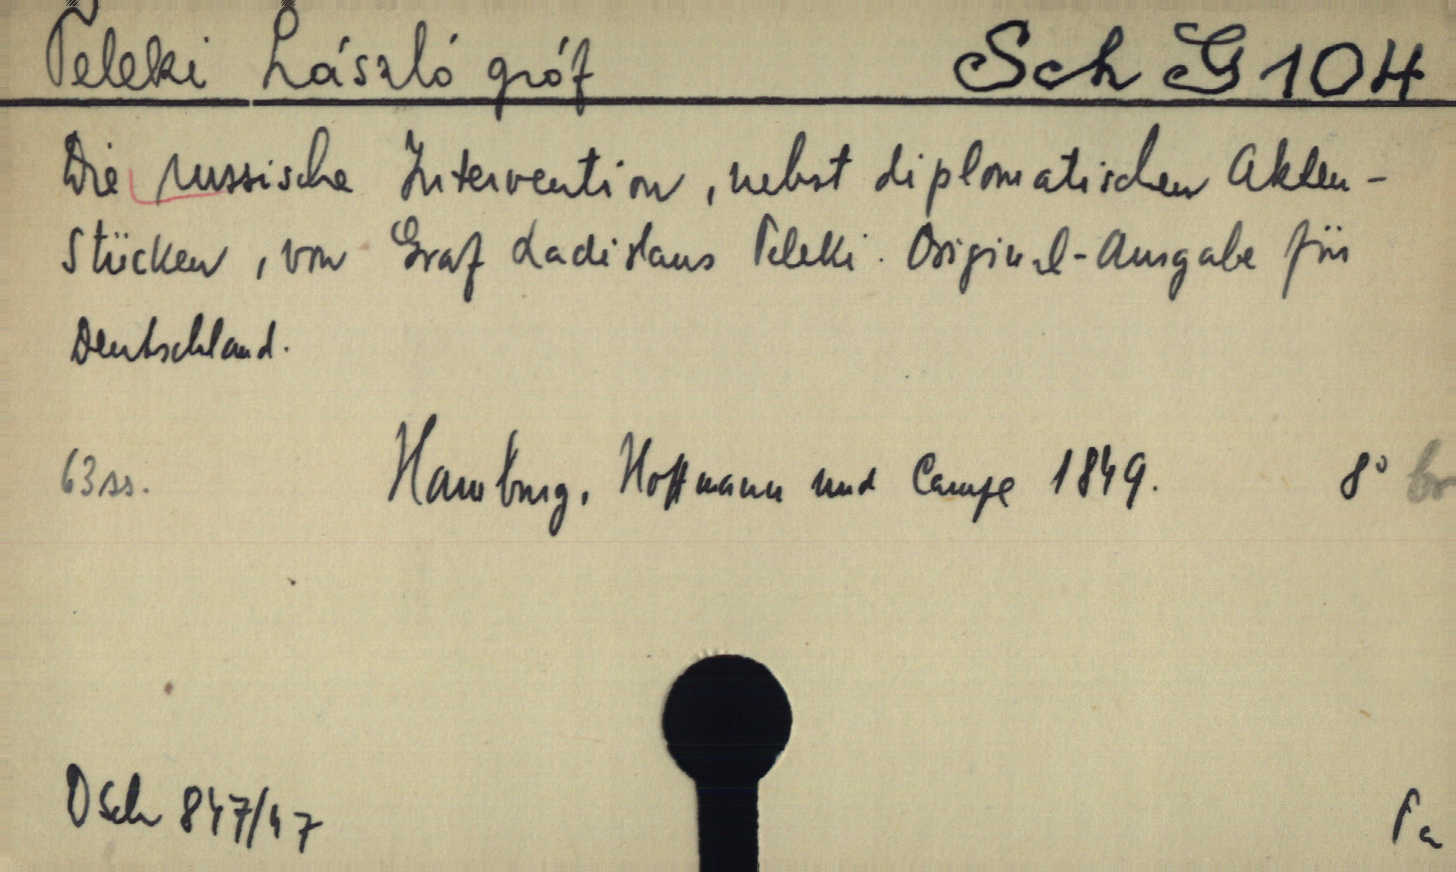 Teleki László gróf Sch G 104
Die russische Intervention, nebst diplomatischen Akten-
Stücken, von Graf Ladislaus Teleki. Original-Ausgabe für
Deutschland.
63 ss. Hamburg, Hoffmann und Campe 1849. 8° br
D Sch 847/47 Ta